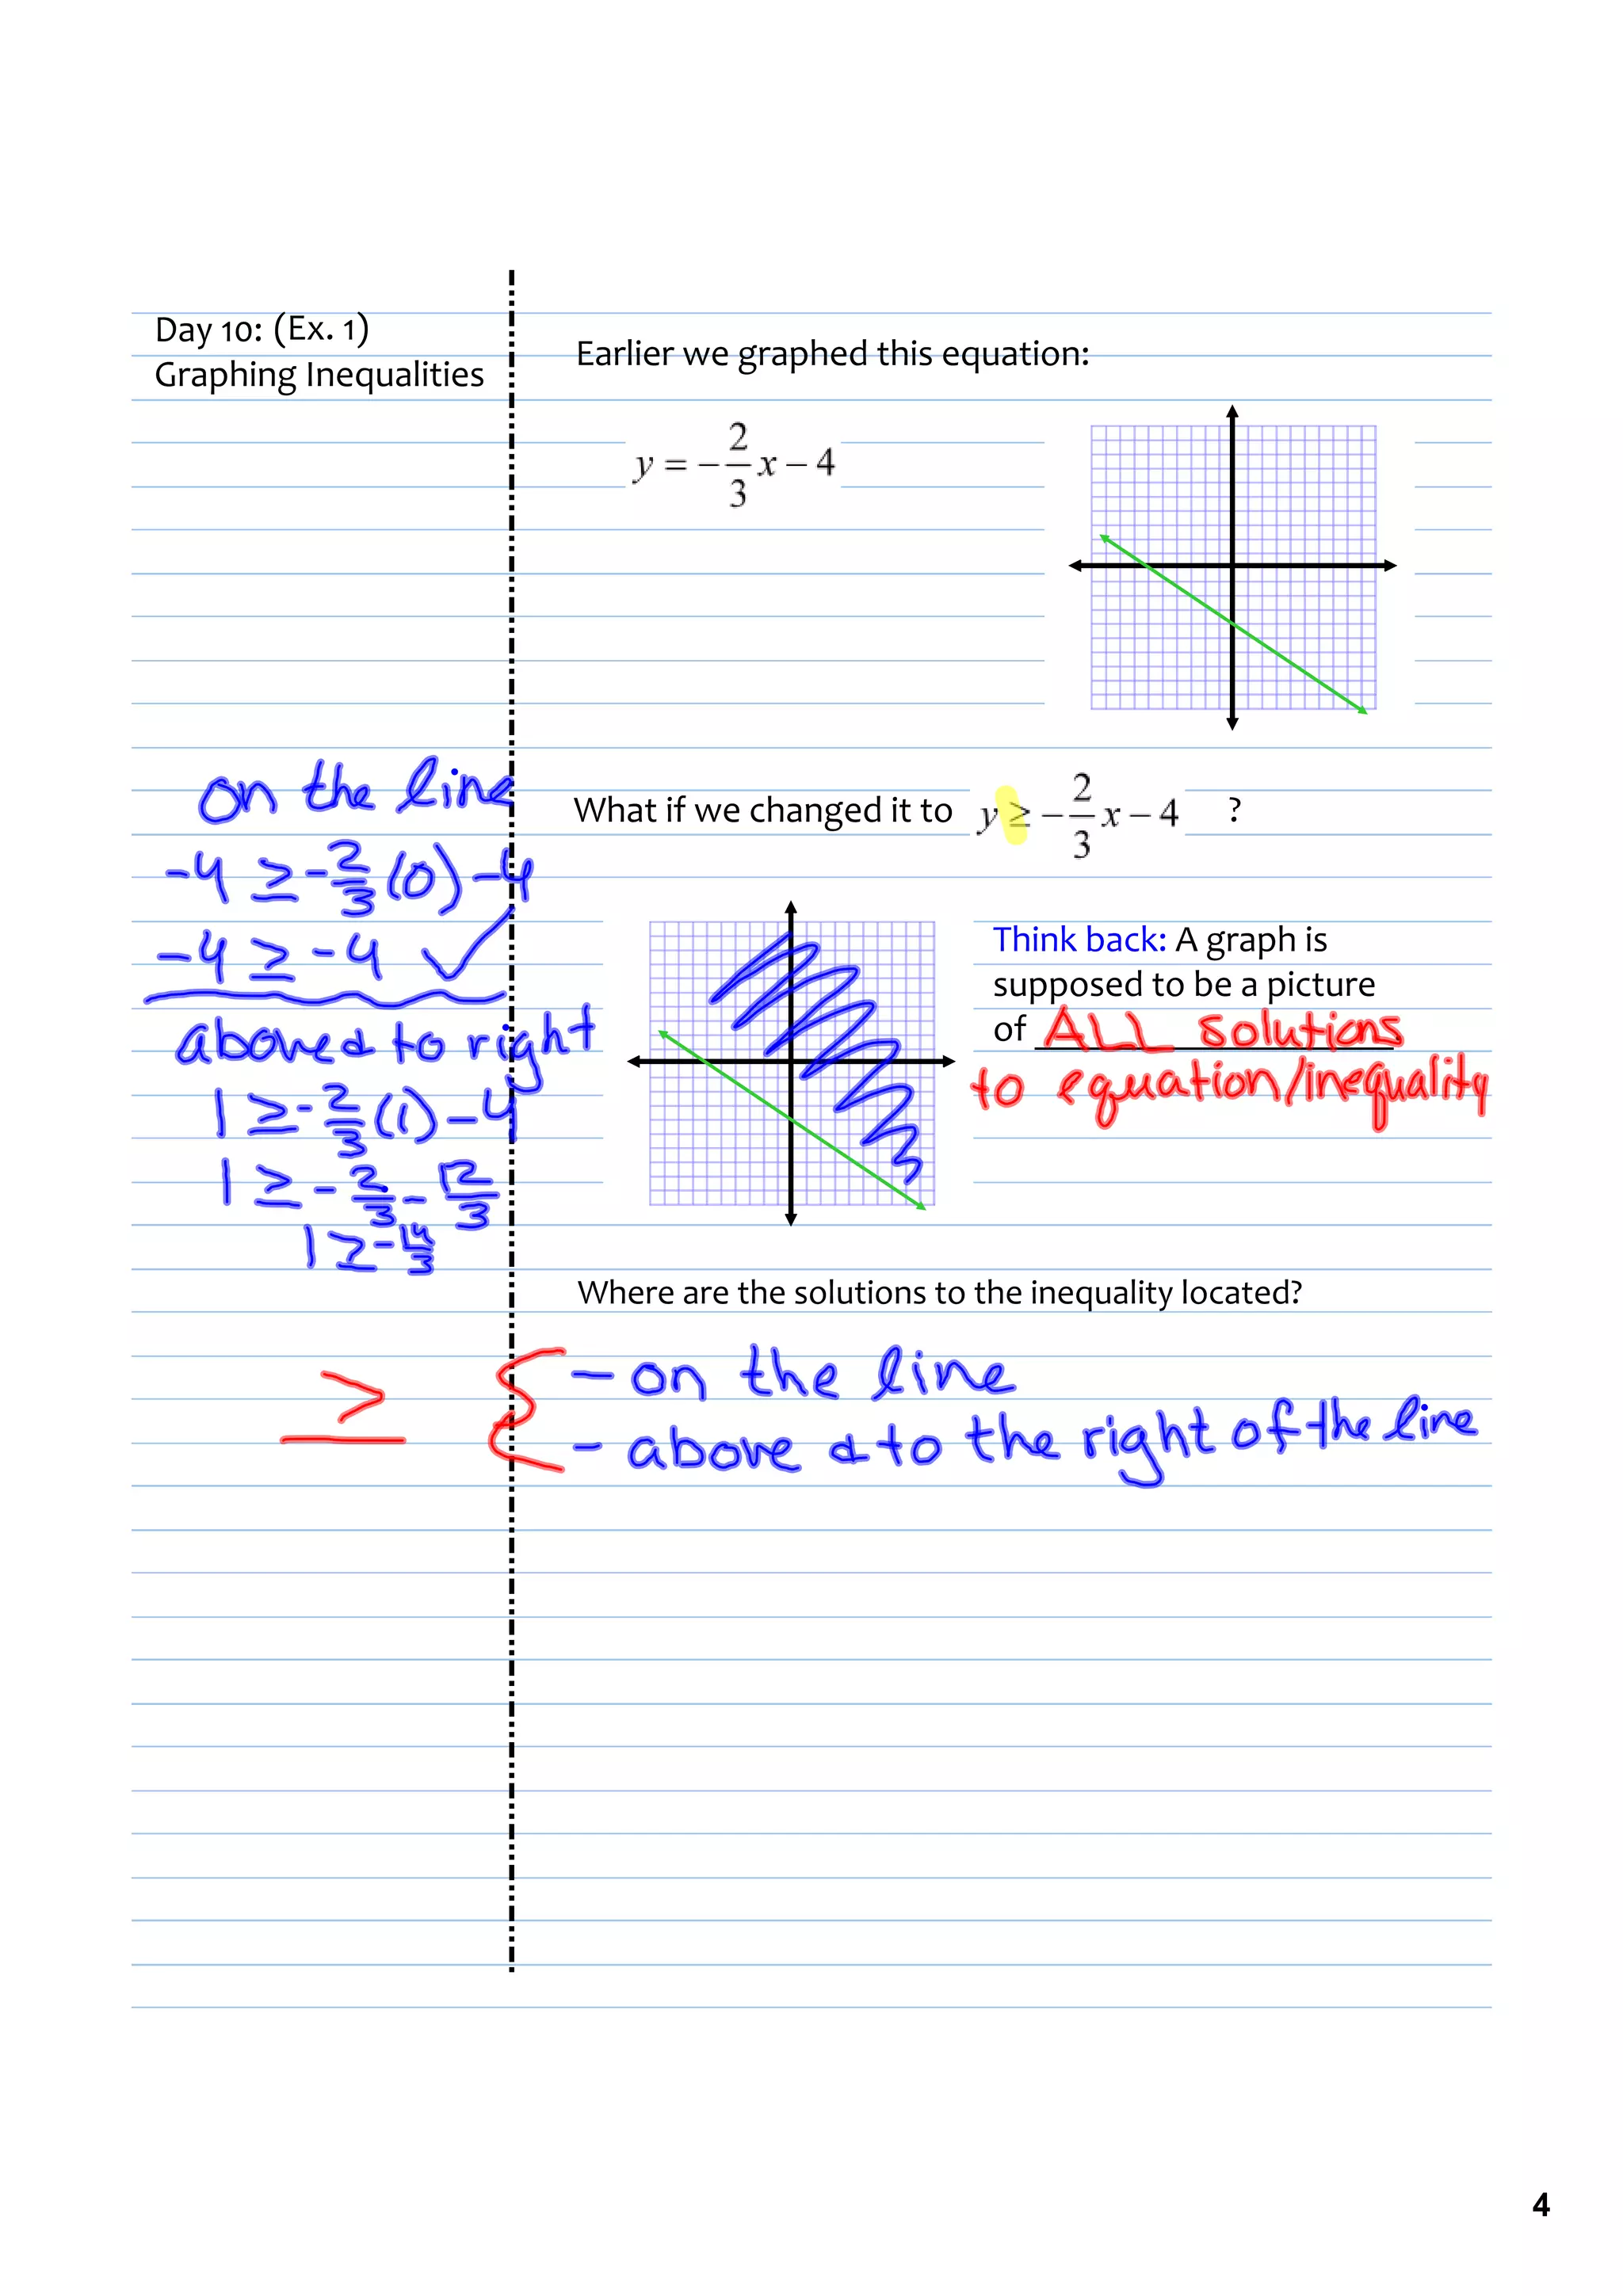 Day 10: (Ex. 1)
Graphing Inequalities
Earlier we graphed this equation:
y = -2/3 x - 4
What if we changed it to y ≥ -2/3 x - 4 ?
on the line
-4 ≥ -2/3 (0) -4
-4 ≥ -4 ✓
above & to right
1 ≥ -2/3 (1) -4
1 ≥ -2/3 - 12/3
1 ≥ -14/3
Think back: A graph is
supposed to be a picture
of ALL solutions
to equation/inequality
Where are the solutions to the inequality located?
≥ { - on the line
- above & to the right of the line
4